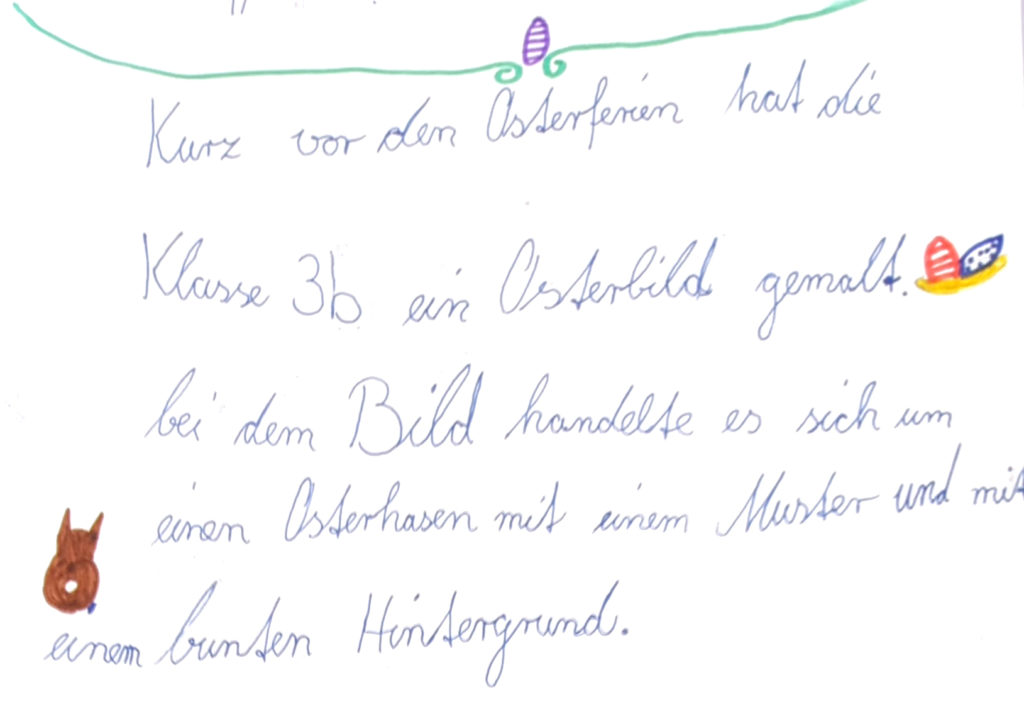 Kurz vor den Osterferien hat die
Klasse 3b ein Osterbild gemalt.
bei dem Bild handelte es sich um
einen Osterhasen mit einem Muster und mit
einem bunten Hintergrund.